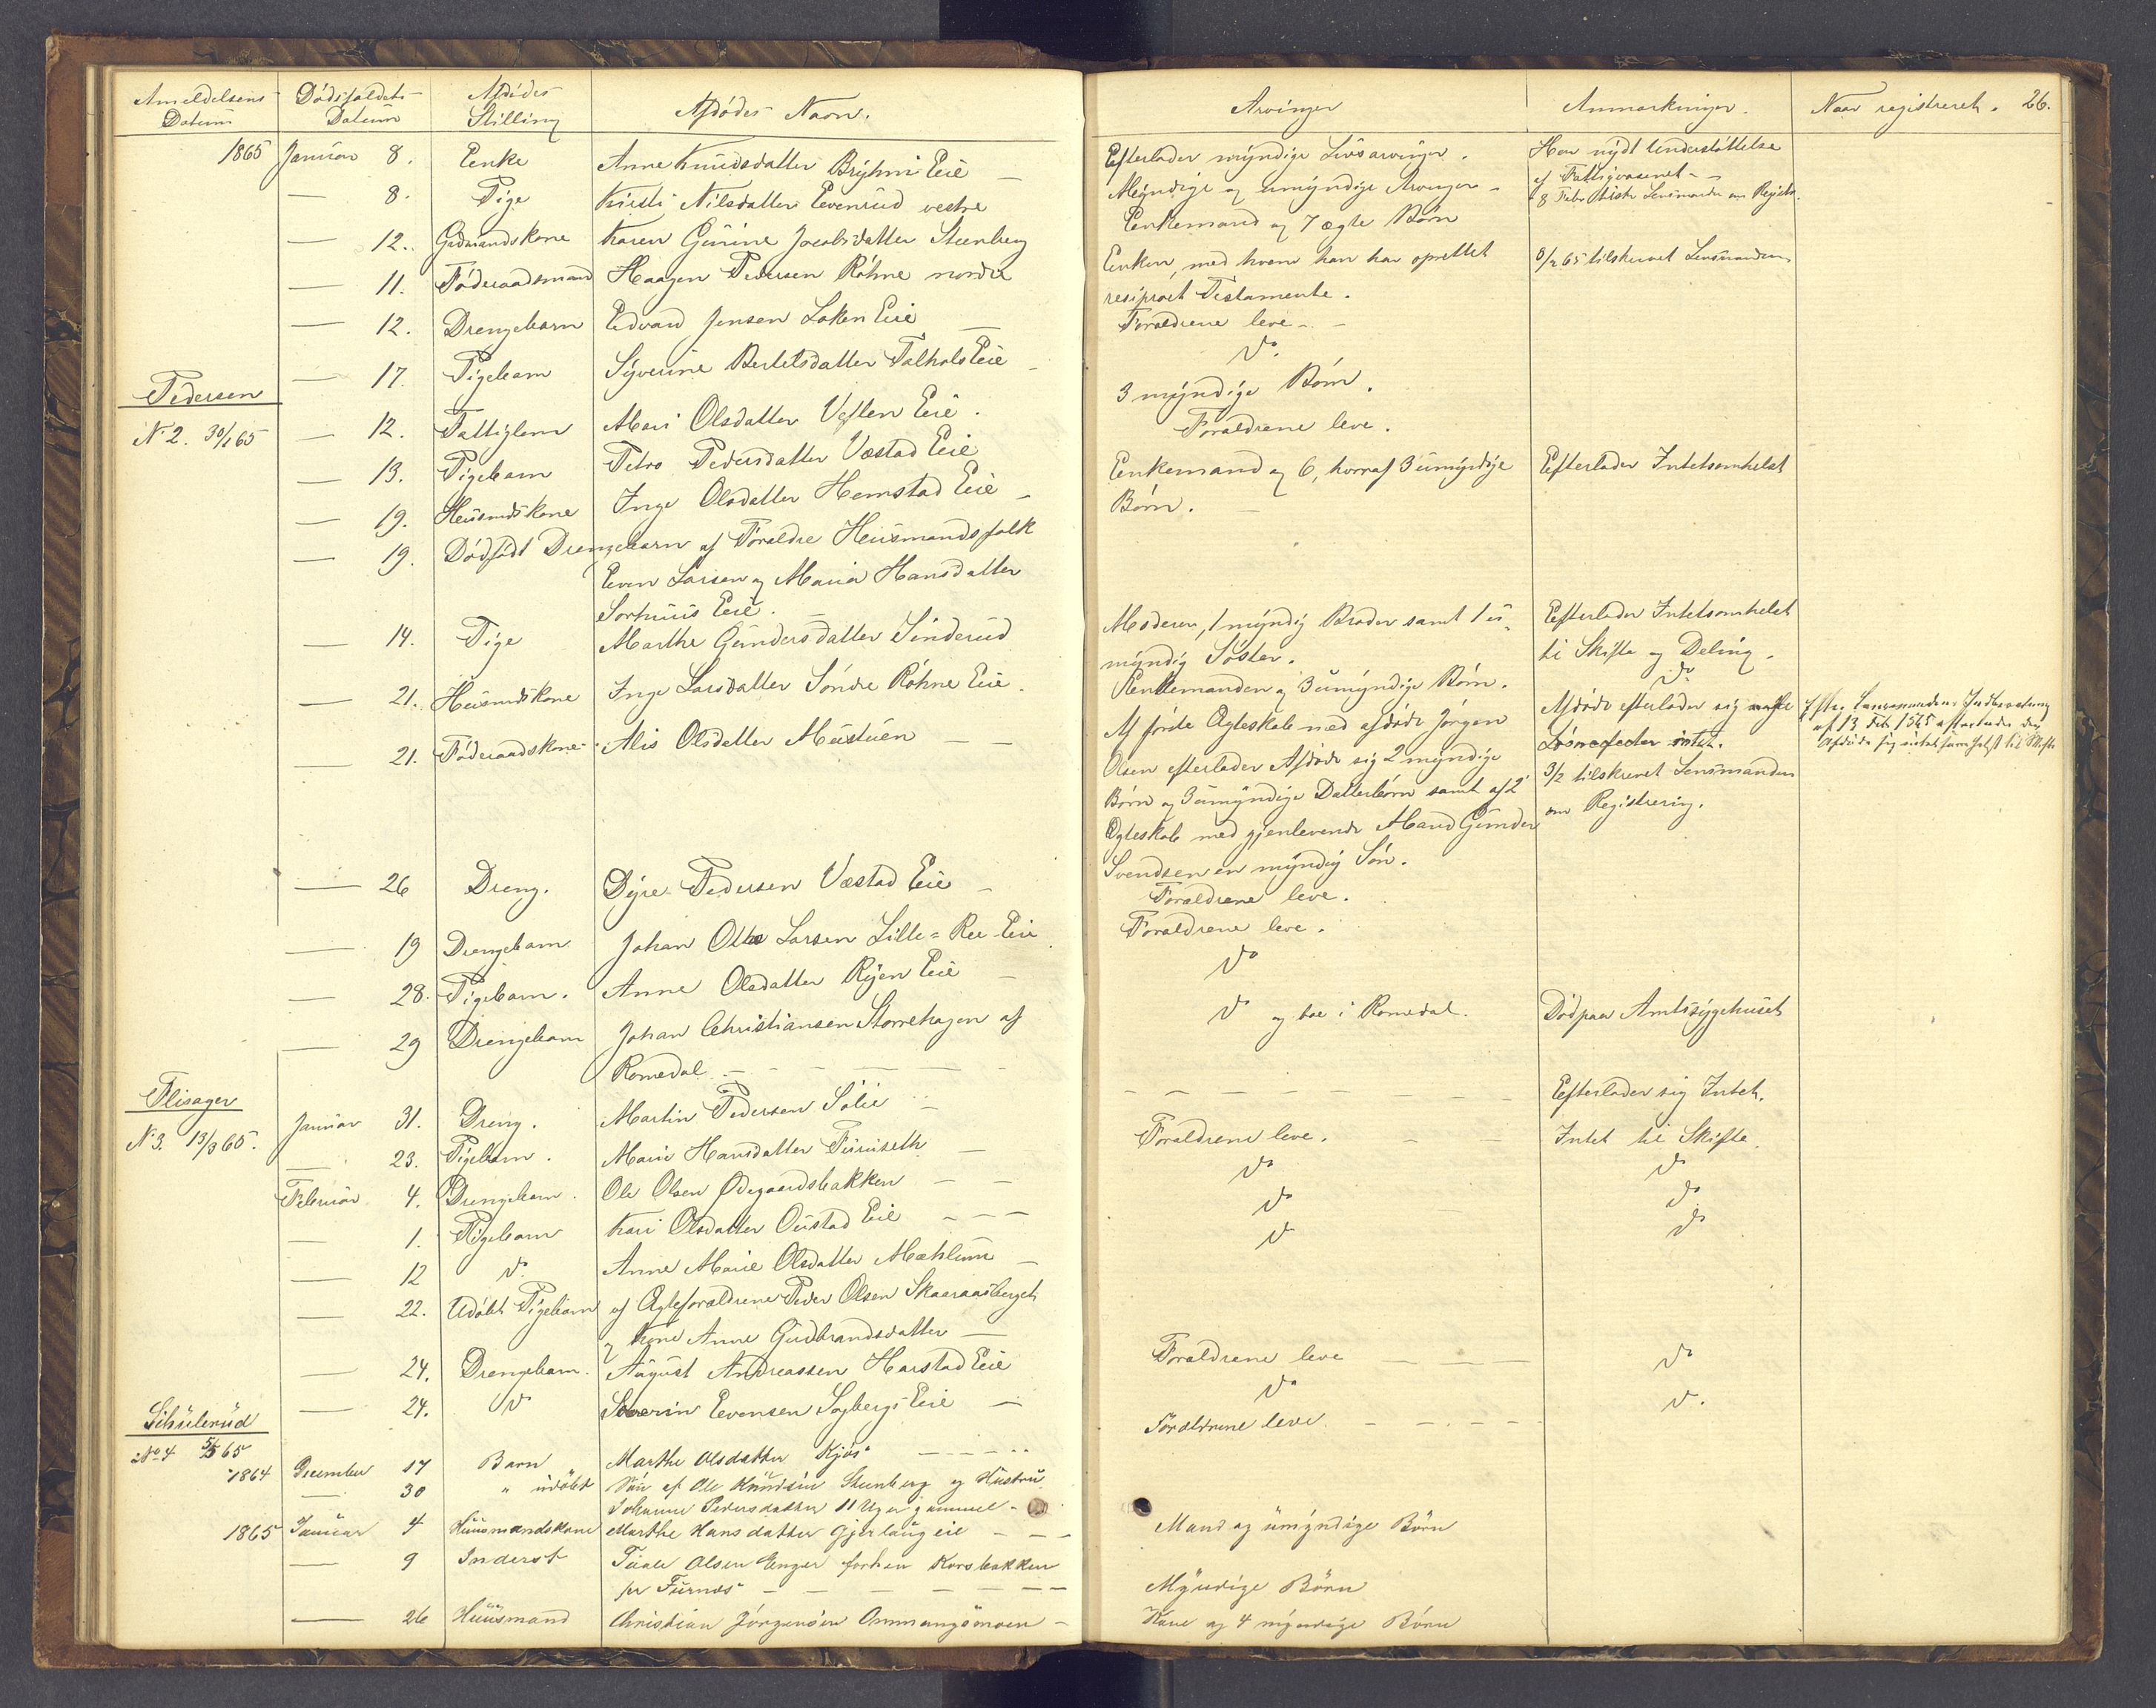 Anmeldelsens Datum
Dödsfaldets Datum
Afdödes Stilling
Afdödes Navn.
1865 Januar 8. Enke Anne Knudsdatter Bryhni Eie —
— 8. Pige Kirsti Nilsdatter Evenrud vestre
— 12. Gaardmandskone Karen Gurine Jacobsdatter Steenberg
— 11. Föderaadsmand Haagen Pedersen Röhne nordre
— 12. Drengebarn Edvard Jensen Løken Eie —
— 17. Pigebarn Syverine Bertelsdatter Falhols Eie
Pedersen
N. 2. 30/1 65
— 12. Fattiglem Mari Olsdatter Veflen Eie.
— 13. Pigebarn Petra Pedersdatter Væstad Eie
— 19. Huusmdskone Inge Olsdatter Hemstad Eie —
— 19. Dödfödt Drengebarn af Forældre Huusmandsfolk
Even Larsen og Maria Hansdatter
Sorhuus Eie.
— 14. Pige Marthe Gundersdatter Sinderud
— 21. Huusmdskone Inge Larsdatter Söndre Röhne Eie.
— 21. Föderaadskone Alis Olsdatter Mustuen — —
— 26 Dreng. Dyre Pedersen Væstad Eie —
— 19 Drengebarn Johan Otto Larsen Lille-Ree Eie
— 28. Pigebarn. Anne Olsdatter Ryen Eie —
— 29 Drengebarn Johan Christiansen Storrehagen af
Romedal — — — —
Flisager
N. 3. 13/3 65.
Januar 31. Dreng. Martin Pedersen Sölie —
— 23. Pigebarn. Marie Hansdatter Furuseth —
Februar 4. Drengebarn. Ole Olsen Ødegaardsbakken — —
— 1. Pigebarn Kari Olsdatter Oustad Eie — — —
— 12 do Anne Marie Olsdatter Mæhlum —
— 22. Udöbt Pigebarn af Ægteforældrene Peder Olsen Skaaraasberget
og Kone Anne Gudbrandsdatter —
— 24. Drengebarn. August Andreassen Harstad Eie
— 24. do Severin Evensen Sogbergs Eie —
Schulerud
No 4 5/5 65
1864 December 17 Barn Marthe Olsdatter Kjös — — — —
— 30 " udöbt Sön af Ole Knudsen Steenberg og Hustru
Johanne Pedersdatter 11 Uger gammel —
1865 Januar 4 Huusmandskone Marthe Hansdatter Gjerlaug eie — — —
— 9 Inderst Paale Olsen Enger forhen Korsbakken
fr Furnæs — — — — — —
— 26 Huusmand Christian Jörgensen Ommangsmoen —
Arvinger
Anmærkninger.
Naar registreret. 26.
Efterlader myndige Livsarvinger.
Har nydt Understöttelse
af Fattigvæsenet —
Myndige og umyndige Arvinger —
8 Febr tilskr Lensmanden om Registr.
Enkemand og 7 ægte Börn
Enken, med hvem han har oprettet
8/2 65 tilskrevet Lensmanden
resiproct Testamente.
Forældrene leve — —
do.
3 myndige Börn.
Forældrene leve.
Enkemand og 6, hvoraf 3 umyndige
Efterlader Intetsomhelst
Börn. —
Moderen, 1 myndig Broder samt 1 u-
Efterlader Intetsomhelst
myndig Söster.
til Skifte og Deling.
Enkemanden og 3 umyndige Börn.
do
Af förste Ægteskab med afdöde Jörgen
Afdöde efterlader sig
Olsen efterlader Afdöde sig 2 myndige
Lösnefeder intet.
Börn og 3 umyndige Datterbörn samt af 2
3/2 tilskrevet Lensmanden
Ægteskab med gjenlevende Mand Gunder
om Registrering.
Svendsen en myndig Sön.
Efter Lensmandens Indberetning
af 13 Feb 1865 efterlader den
Afdöde sig intetsomhelst til Skifte
Forældrene leve.
Forældrene leve.
do
do og boe i Romedal.
Död paa Amtssygehuset
— — — — — — —
Efterlader sig Intet.
Forældrene leve. — —
Intet til Skifte.
do do
do do
do do
Forældrene leve — — —
do
do
do.
Forældrene leve. — — — —
Mand og umyndige Börn
Myndige Börn
Kone og 4 myndige Börn